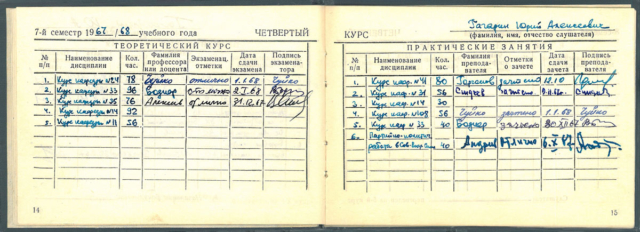 7-й семестр 1967/68 учебного года ЧЕТВЕРТЫЙ
ТЕОРЕТИЧЕСКИЙ КУРС
№ п/п Наименование дисциплин Кол. час. Фамилия профессора или доцента Экзаменац. отметки Дата сдачи экзамена Подпись экзаменатора
1. Курс кафедры №24 78 Чуйко отлично 1.1.68
2. Курс кафедры №33 96 Боднер отлично 2.I.68
3. Курс кафедры №25 76 отлично
4. Курс кафедры №14 92
5. Курс кафедры №11 56
14
КУРС Гагарин Юрий Алексеевич
(фамилия, имя, отчество слушателя)
ПРАКТИЧЕСКИЕ ЗАНЯТИЯ
№ п/п Наименование дисциплин Кол. час. Фамилия преподавателя Отметки о зачете Дата сдачи зачета Подпись преподавателя
1. Курс каф. №41 80 зачтено
2. Курс каф. 56 зачтено
3. Курс каф. №14 30
4. Курс каф. №08 56 Чуйко зачтено 1.1.68 Чуйко
5. Курс каф. №33 40 Боднер зачтено
6. Партийно-политич.
работа в Сов. 40 Отлично 6.X.67
15